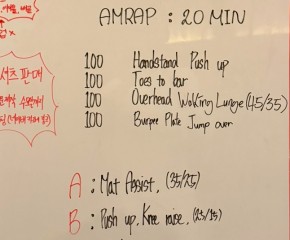 AMRAP : 20 MIN
100 Handstand Push up
100 Toes to bar
100 Overhead Walking Lunge (45/35)
100 Burpee Plate Jump over
A : Mat Assist, (35/25)
B : Push up, Knee raise,